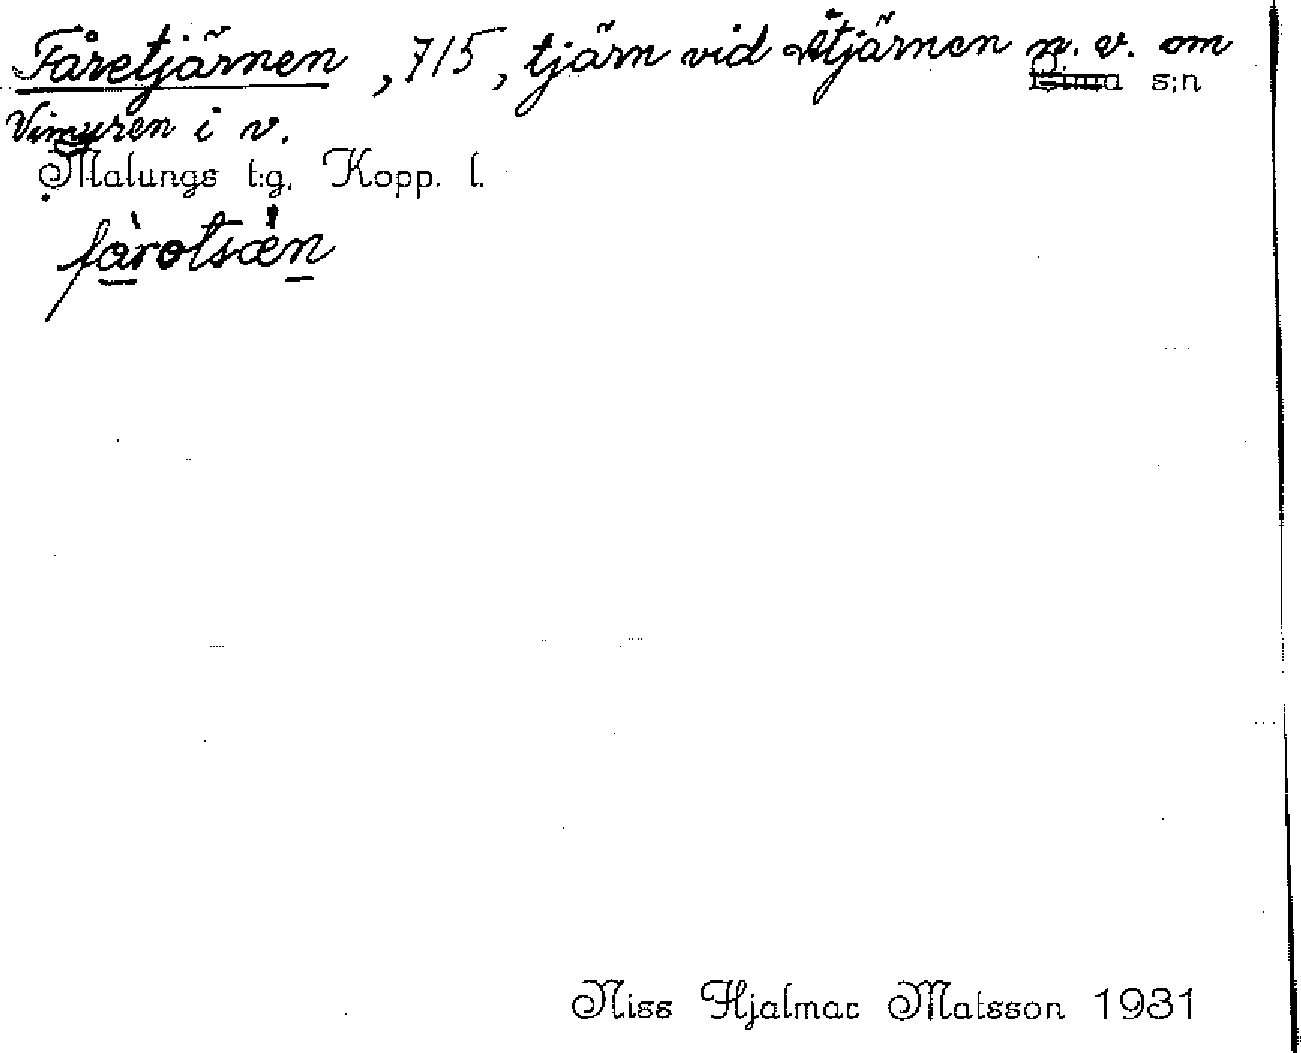 Fåretjärnen, 715, tjärn vid Åtjärnen n. v. om
Lima s:n
Vimyren i v.
Malungs t:g. Kopp. l.
fàrotsǽn
Niss Hjalmar Matsson 1931